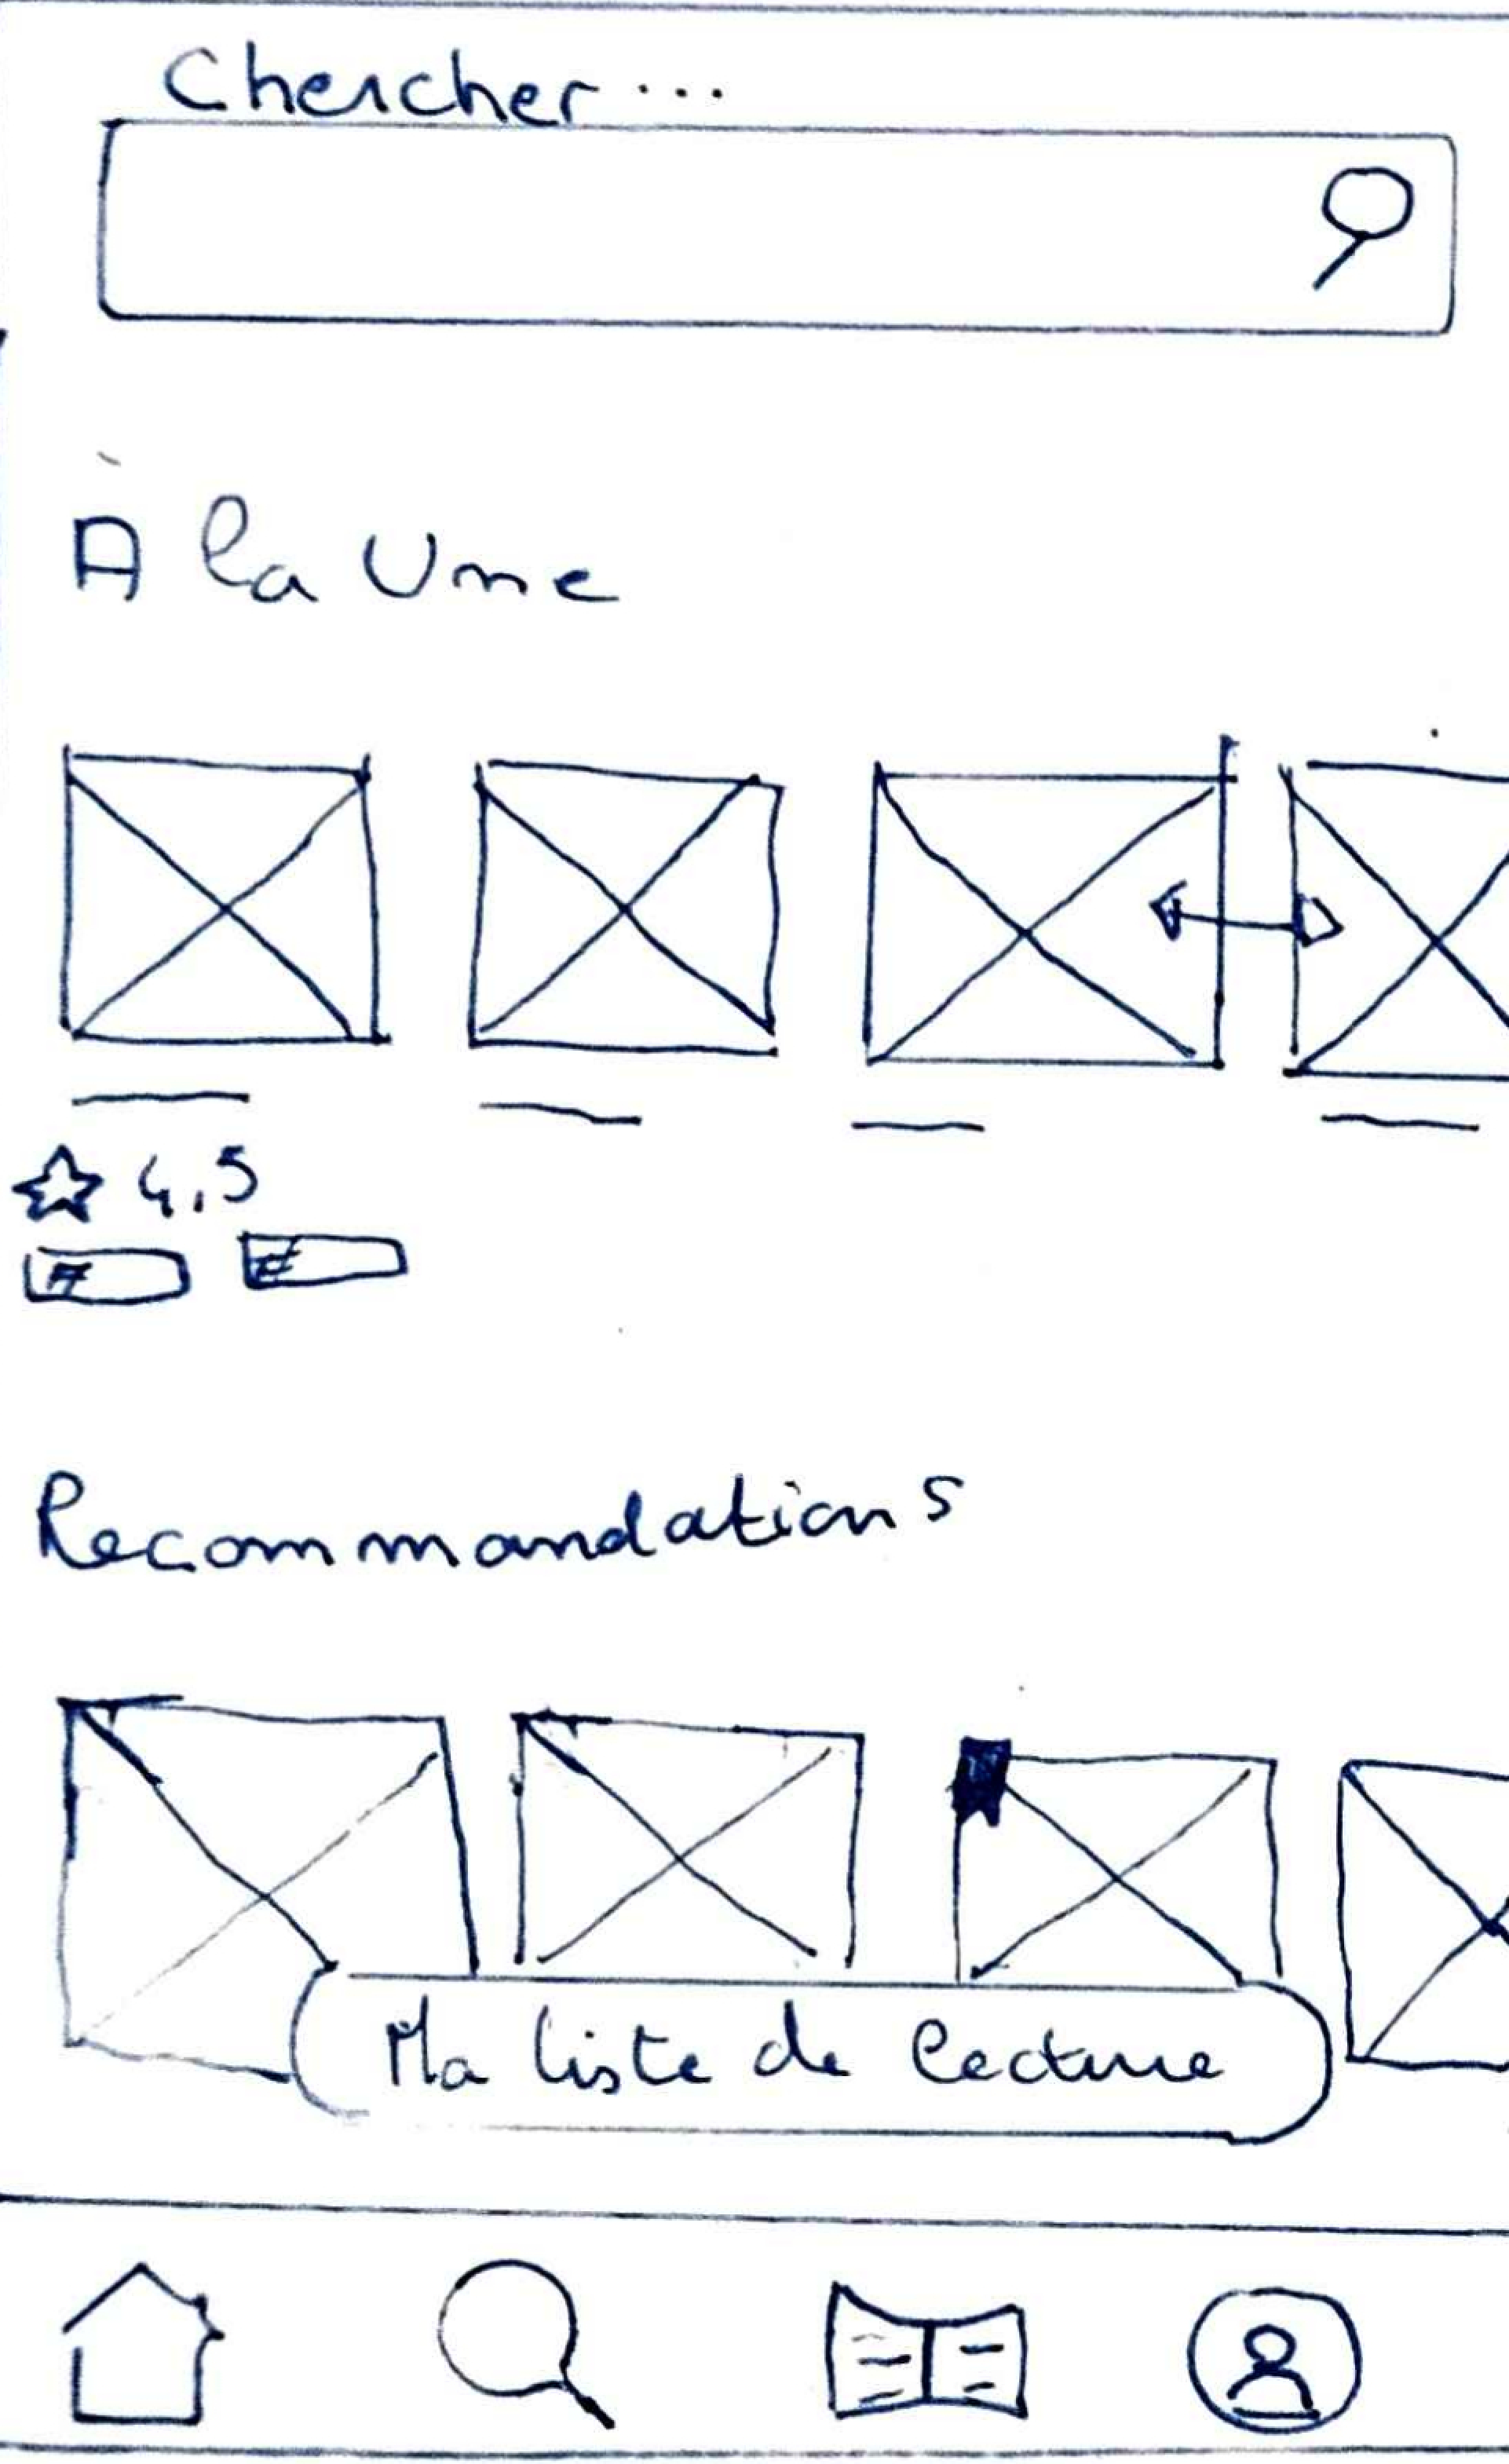 Chercher...
À la Une
4,5
#
#
Recommandations
Ma liste de lecture